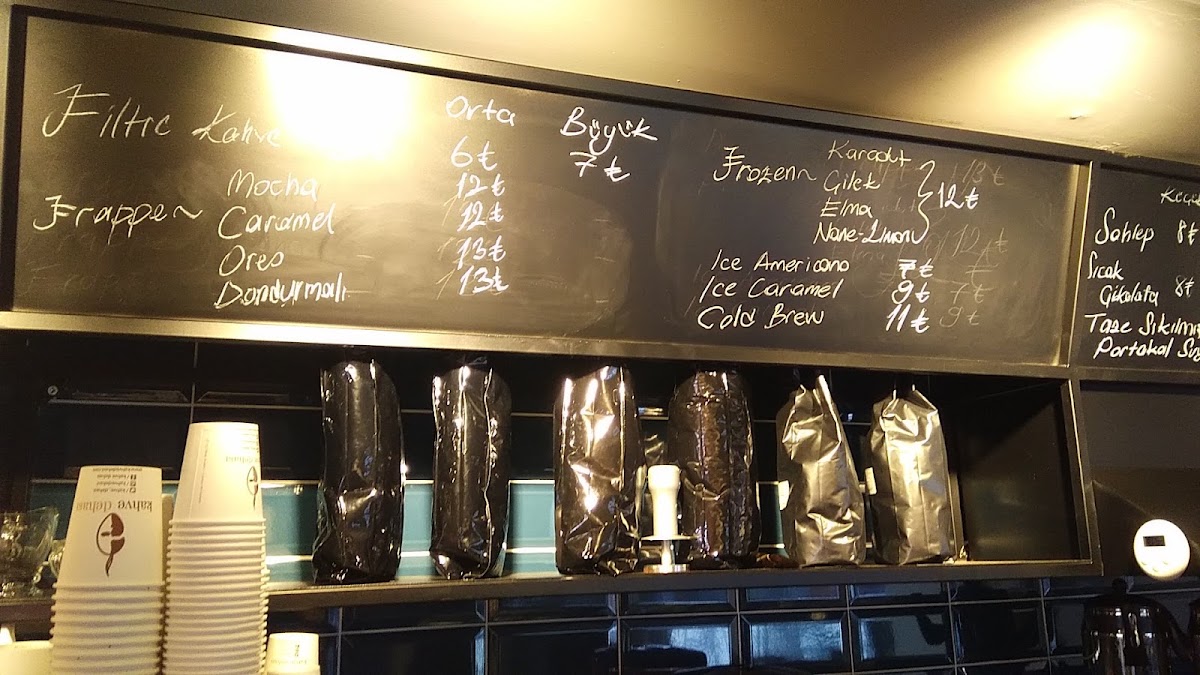 Orta Büyük
Filtre Kahve 6₺ 7₺
Frappe
Mocha 12₺
Caramel 12₺
Oreo 13₺
Dondurmalı 13₺
Frozen 12₺
Karadut
Çilek
Elma
Nane-Limon
Ice Americano 7₺
Ice Caramel 9₺
Cold Brew 11₺
Sahlep 8₺
Sıcak
Çikolata 8₺
Taze Sıkılmış
Portakal
kahve dehası